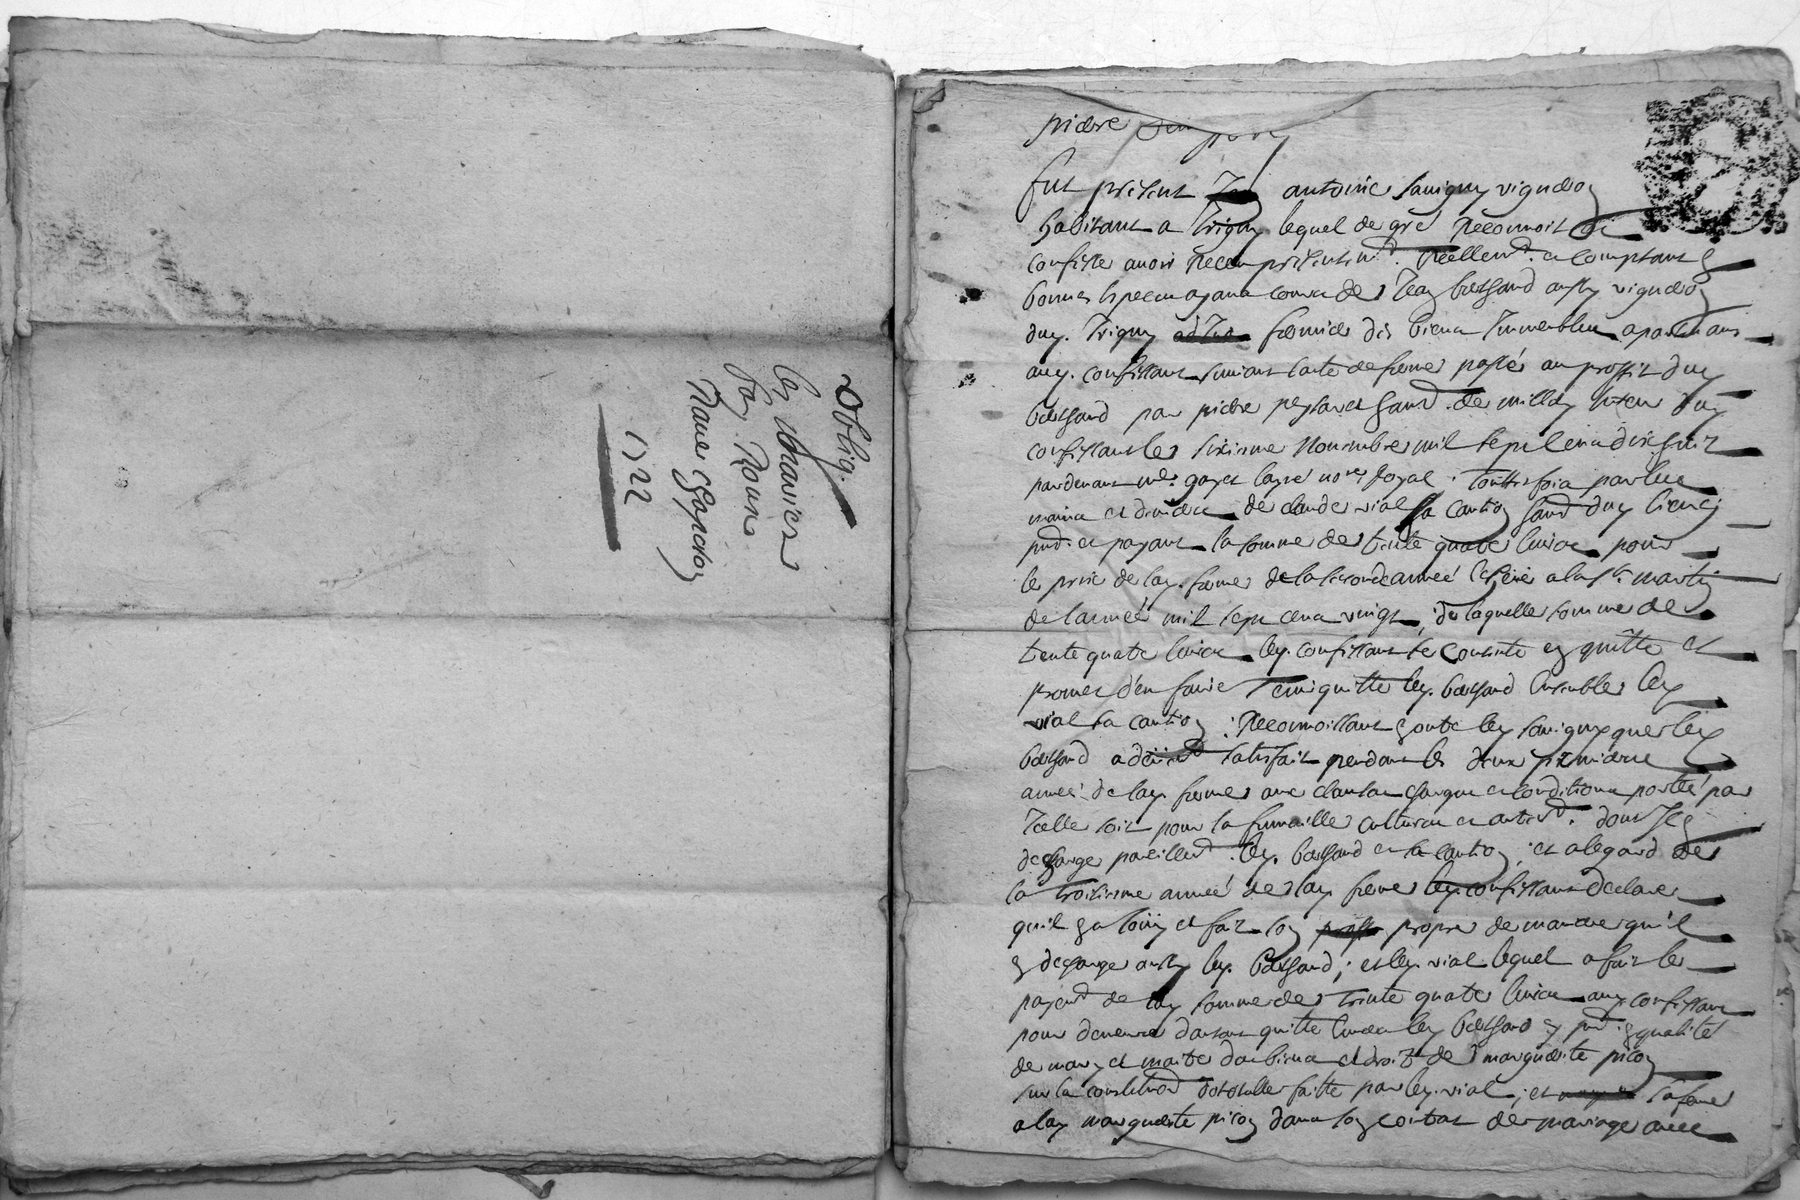 Oblig.
1722
fut present antoine savigny vigneron
habitant a Trigny lequel de gré Reconnoit et
confesse avoir Receu presentemt. Reellemt. et comptant en
bonnes especes ayant cours de Jean bersand aussy vigneron
dud. Trigny fermier des biens Immeubles apartenans
aud. confessant suivant lacte de ferme passée au proffit dud.
bersand par pierre hant. de milly tuteur dud.
confessant le sixieme Novembre mil sept cens dix huit
pardevant me. gayet layné nore. Royal. Touttefois par les
mains et deniers de claude vial sa caution hant. dud. lieu cy
prnt. et payant la somme de trente quatre livres pour
le prix de lad. ferme de la seconde année echeüe a la st. martin
de l'année mil sept cens vingt, de laquelle somme de
trente quatre livres led. confessant se contente en quitte et
promet d'en faire tenir quitte led. bersand ensemble led.
vial sa caution ; Reconnoissant en outre led. savigny que led.
bersand a satisfait pendant les deux premieres
années de lad. ferme aux clauses charges et conditions portées par
Icelle soit pour la semaille cultures et autremt. dont Il en
decharge pareillemt. led. bersand et sa caution ; et a legard de
la troisieme année de lad. ferme led. confessant declare
qu'il en a joüy et fait son propre de maniere qu'il
en decharge aussy led. bersand ; et led. vial lequel a fait le
payemt. de lad. somme de trente quatre livres aud. confessant
pour demeurer dautant quitte envers led. bersand cy prnt. en qualité
de mary et maitre des biens et droits de marguerite picon
sur la constitution dotalle faitte par led. vial ; et sa feme
a lad. marguerite picon dans son contrat de mariage avec